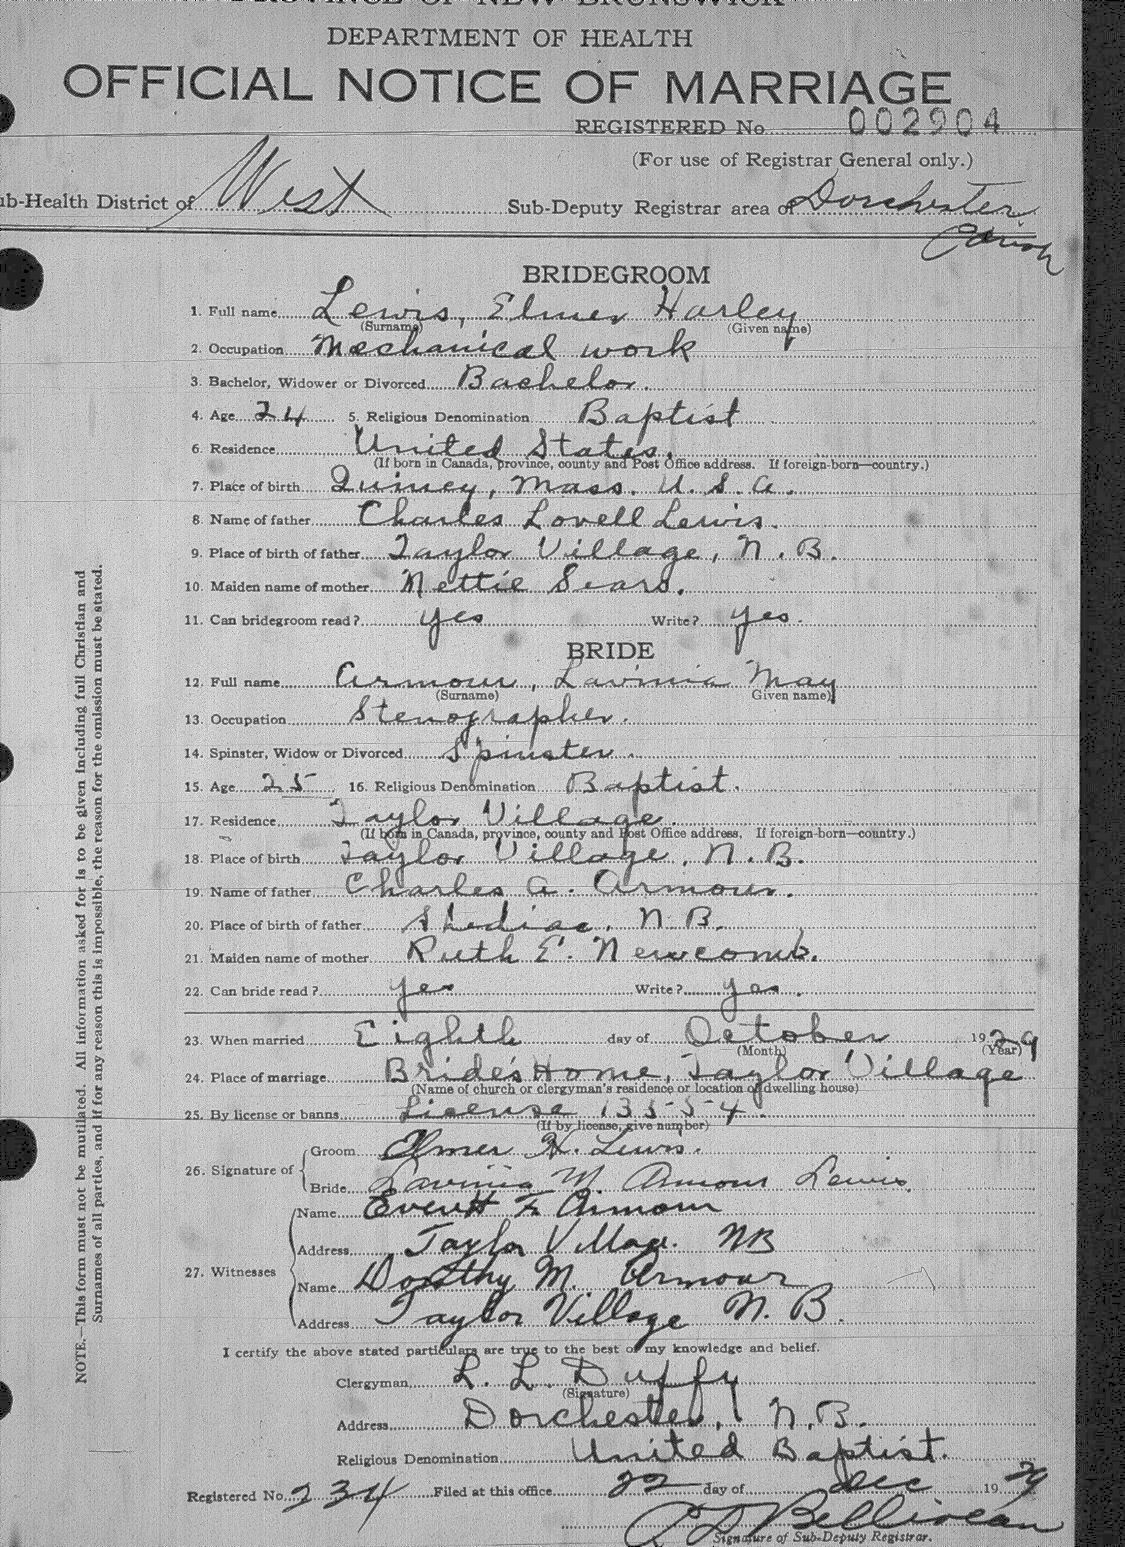 PROVINCE OF NEW BRUNSWICK
DEPARTMENT OF HEALTH
OFFICIAL NOTICE OF MARRIAGE
REGISTERED No. 002904
(For use of Registrar General only.)
ub-Health District of West Sub-Deputy Registrar area of Dorchester
BRIDEGROOM
1. Full name Lewis, Elmer Harley
(Surname) (Given name)
2. Occupation Mechanical work
3. Bachelor, Widower or Divorced Bachelor.
4. Age 24 5. Religious Denomination Baptist
6. Residence United States.
(If born in Canada, province, county and Post Office address. If foreign-born—country.)
7. Place of birth Quincy, Mass. U.S.A.
8. Name of father Charles Lovell Lewis.
9. Place of birth of father Taylor Village, N.B.
10. Maiden name of mother Nettie Sears.
11. Can bridegroom read? yes Write? yes.
BRIDE
12. Full name Armour, Lavinia May
(Surname) Given name)
13. Occupation Stenographer.
14. Spinster, Widow or Divorced Spinster.
15. Age 25 16. Religious Denomination Baptist.
17. Residence Taylor Village.
(If born in Canada, province, county and Post Office address. If foreign-born—country.)
18. Place of birth Taylor Village, N.B.
19. Name of father Charles A. Armour.
20. Place of birth of father Shediac, N.B.
21. Maiden name of mother Ruth E. Newcomb.
22. Can bride read? yes Write? yes.
23. When married Eighth day of October 1929
(Month) (Year)
24. Place of marriage Bride's Home, Taylor Village
(Name of church or clergyman's residence or location of dwelling house)
25. By license or banns License 13554.
(If by license, give number)
26. Signature of
Groom Elmer H. Lewis.
Bride Lavinia M Armour Lewis.
27. Witnesses
Name Everett F. Armour
Address Taylor Village. NB
Name Dorothy M. Armour
Address Taylor Village N.B.
I certify the above stated particulars are true to the best of my knowledge and belief.
Clergyman L. L. Duffy
(Signature)
Address Dorchester, N.B.
Religious Denomination United Baptist.
Registered No. 234 Filed at this office 22 day of Dec 1929
Belliveau
Signature of Sub-Deputy Registrar.
NOTE.—This form must not be mutilated. All information asked for is to be given including full Christian and
Surnames of all parties, and if for any reason this is impossible, the reason for the omission must be stated.